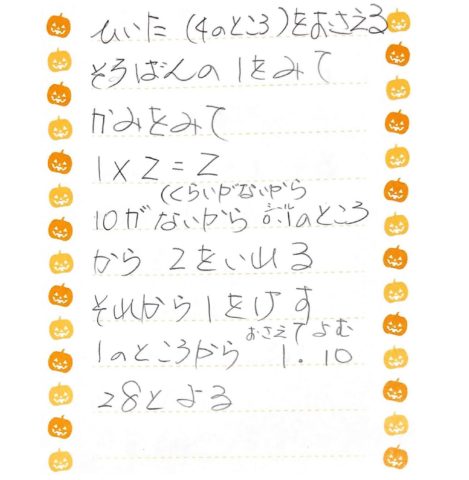 ひいた (4のところ)をおさえる
そろばんの1をみて
かみをみて
1×2=2
(くらいがないから
10がないから シールのところ
から 2をいれる
それから1をけす
おさえてよむ
1のところから 1.10
28とよる